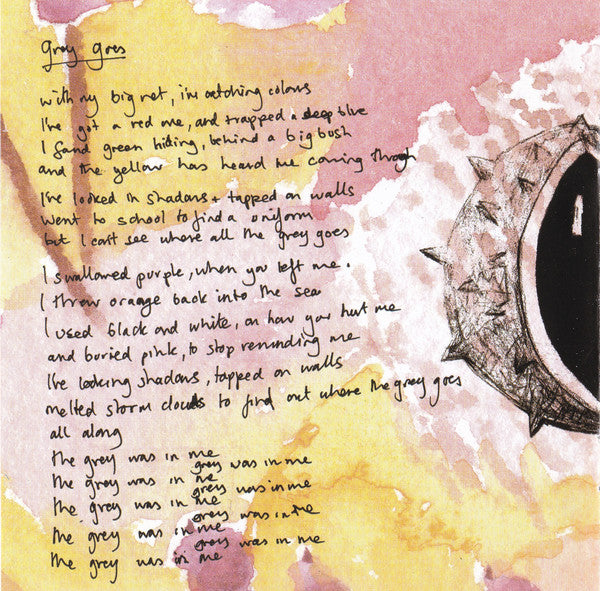 grey goes
with my big net, i'm catching colours
I've got a red one, and trapped a deep blue
I found green hiding, behind a big bush
and the yellow has heard me coming through
I've looked in shadows + tapped on walls
Went to school to find a uniform
but I can't see where all the grey goes
I swallowed purple, when you left me.
I threw orange back into the sea
I used black and white, on how you hurt me
and buried pink, to stop reminding me
I've looking shadows, tapped on walls
melted storm clouds to find out where the grey goes
all along
the grey was in me
grey was in me
the grey was in me
grey was in me
the grey was in me
grey was in me
the grey was in me
grey was in me
the grey was in me